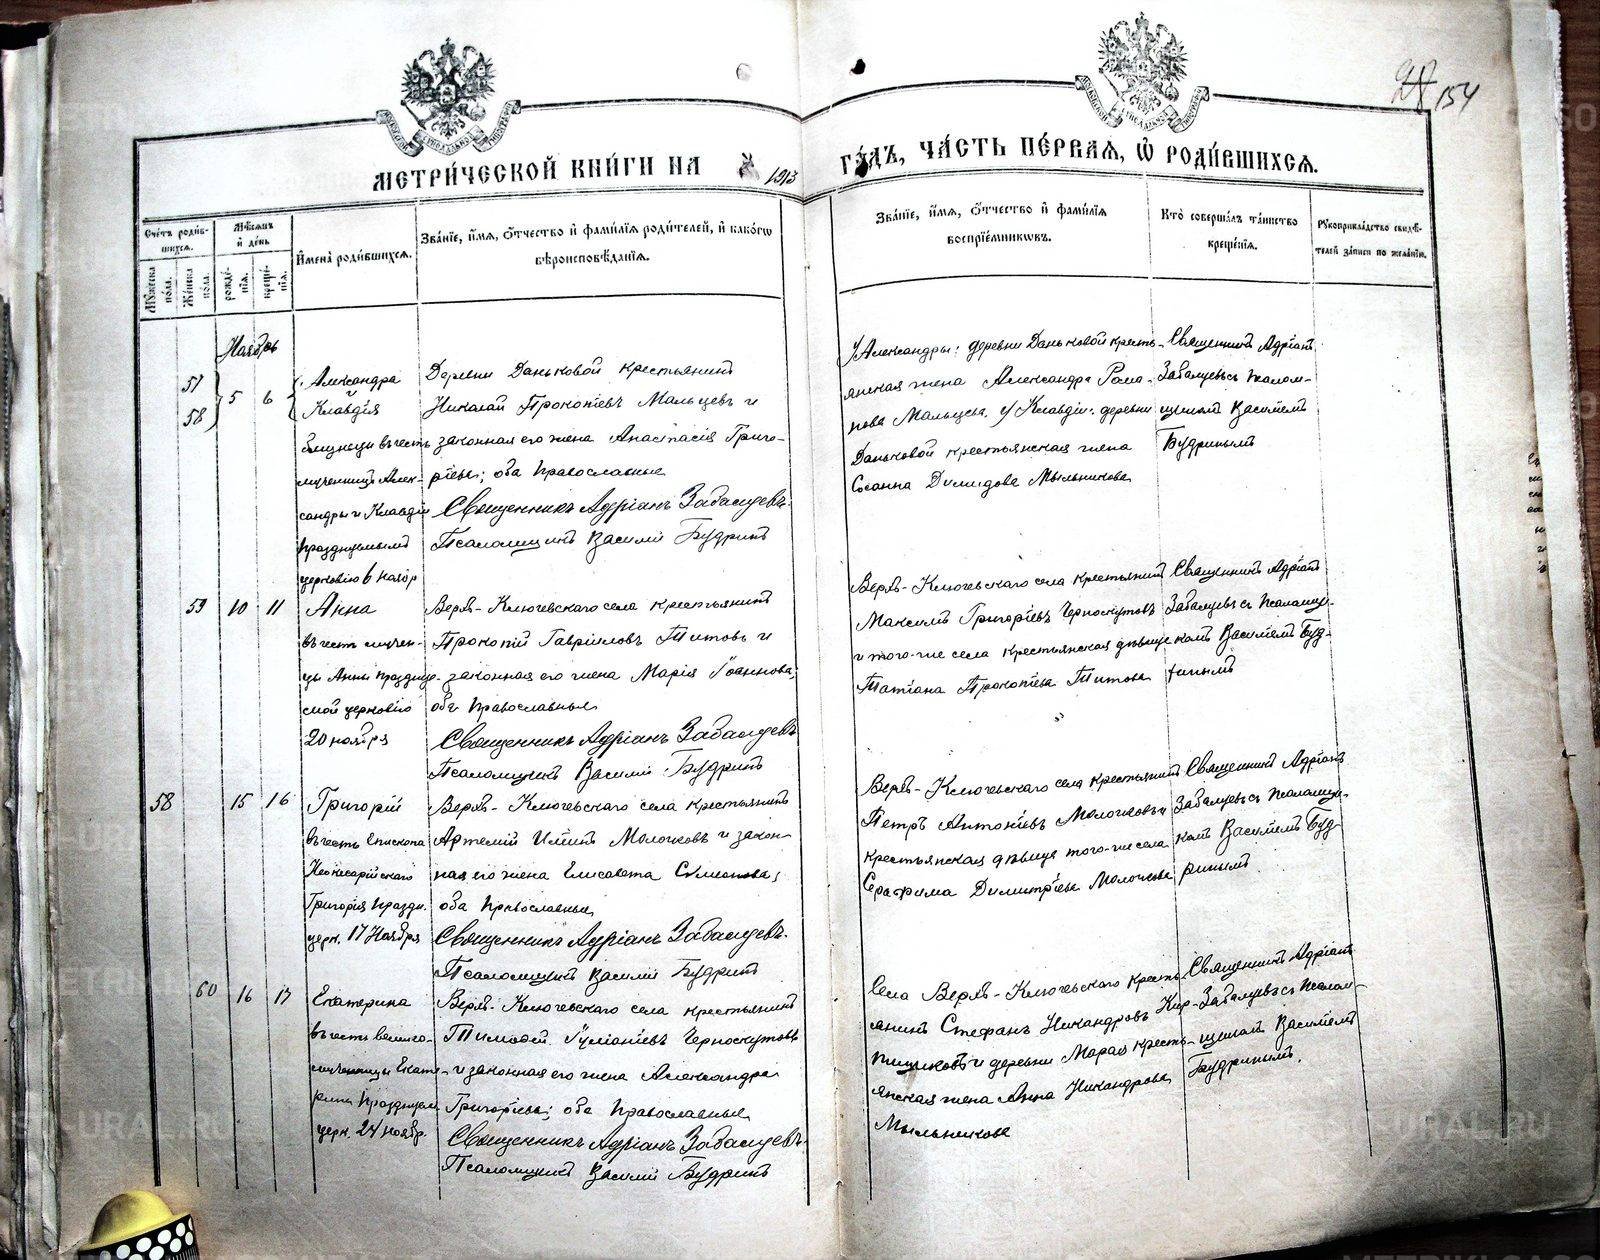 154
МЕТРИ́ЧЕСКОЙ КНИ́ГИ НА 1913 ГО́ДЪ, ЧА́СТЬ ПЕ́РВАЯ, Ѡ РОДИ́ВШИХСЯ.
Сче́тъ роди́вшихся.
Мѣ́сяцъ и де́нь
Му́жеска по́ла.
Же́нска по́ла.
рожде́нія.
креще́нія.
Имена̀ роди́вшихся.
Зва́нїе, и́мя, ѻ́тчество и фами́лїя роди́телей, и како́гѡ
вѣроисповѣ́данїя.
Зва́нїе, и́мя, ѻ́тчество и фами́лїя
воспрїе́мникѡвъ.
Кто̀ соверша́лъ та́инство
креще́нїя.
Рукоприкла́дство свидѣ́телей за́писи по жела́нїю.
Ноябрь
57
58
5
6
Александра
и
Клавдія
близнецы въ честь
мученицъ Алек-
сандры и Клавдіи
празднуемыхъ
церковію 6 ноябр
Деревни Даньковой крестьянинъ
Николай Прокопіевъ Мальцевъ и
законная его жена Анастасія Григо-
ріева; оба Православные
Священникъ Адріанъ Забалуевъ.
Псаломщикъ Василій Будринъ
У Александры: деревни Даньковой кресть-
янская жена Александра Рома-
нова Мальцева. У Клавдіи: деревни
Даньковой крестьянская жена
Сосанна Димидова Мыльникова
Священникъ Адріанъ
Забалуевъ съ псалом-
щикомъ Василіемъ
Будринымъ
59
10
11
Анна
въ честь мучен-
цы Анны праздуе-
мой церковію
20 ноября
Верхъ-Ключевскаго села крестьянинъ
Прокопій Гавріиловъ Титовъ и
законная его жена Марія Іоаннова;
оба Православные
Священникъ Адріанъ Забалуевъ
Псаломщикъ Василій Будринъ
Верхъ-Ключевскаго села крестьянинъ
Максимъ Григоріевъ Черноскутовъ
и того-же села крестьянская дѣвица
Татіана Прокопіева Титова
Священникъ Адріанъ
Забалуевъ съ псаломщи-
комъ Василіемъ Буд-
ринымъ
58
15
16
Григорій
въ честь Епископа
Неокесарійскаго
Григорія праздн.
церк. 17 Ноября
Верхъ-Ключевскаго села крестьянинъ
Артемій Илiинъ Молочковъ и закон-
ная его жена Елисавета Симеонова;
оба Православные
Священникъ Адріанъ Забалуевъ.
Псаломщикъ Василій Будринъ
Верхъ-Ключевскаго села крестьянинъ
Петръ Антоніевъ Молочковъ и
крестьянская дѣвица того-же села
Серафима Димитріева Молочкова
Священникъ Адріанъ
Забалуевъ съ псаломщи-
комъ Василіемъ Буд-
ринымъ
60
16
17
Екатерина
въ честь велико-
мученицы Екате-
рины празднуем.
церк. 24 ноябр.
Верхъ-Ключевскаго села крестьянинъ
Тимофей Іуліаніевъ Черноскутовъ
и законная его жена Александра
Григоріева; оба Православные
Священникъ Адріанъ Забалуевъ.
Псаломщикъ Василій Будринъ
Села Верхъ-Ключевскаго кресть-
янинъ Стефанъ Никандровъ Кир-
пищиковъ и деревни Мараи кресть-
янская жена Анна Никандрова
Мыльникова
Священникъ Адріанъ
Забалуевъ съ псалом-
щикомъ Василіемъ
Будринымъ.